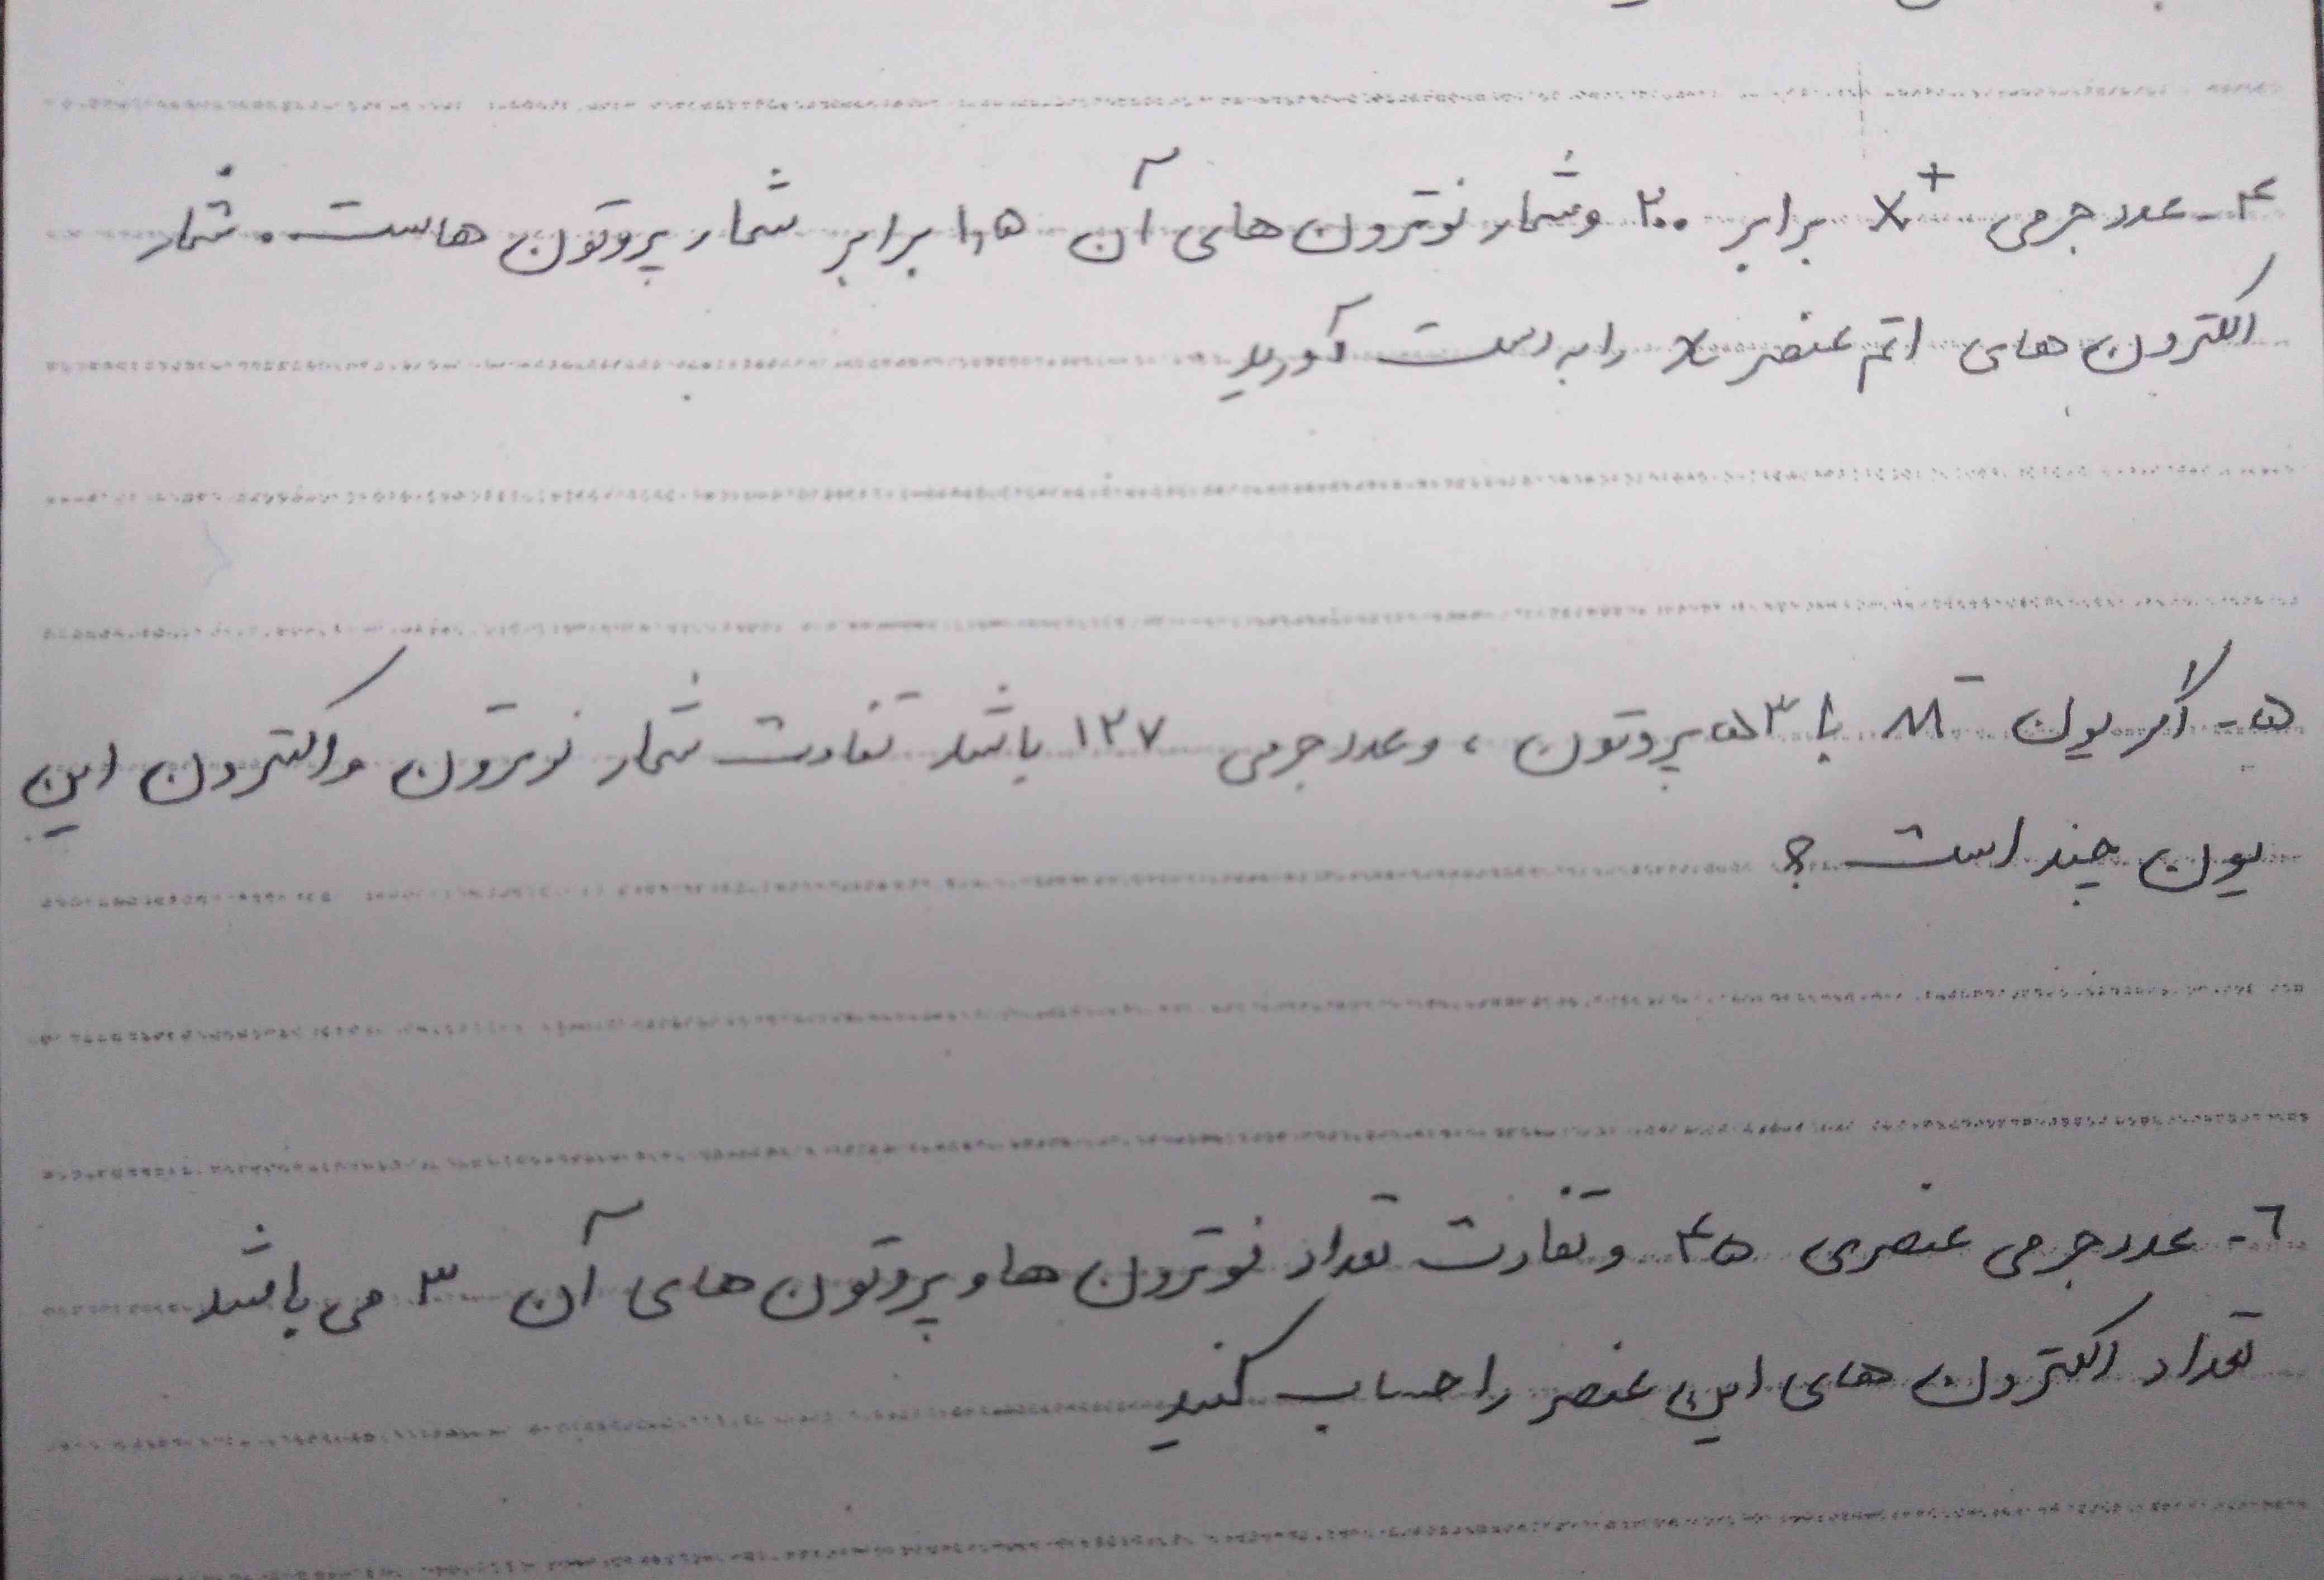 ۴- عدد جرمی X⁺ برابر ۲۰۰ و شمار نوترون های آن ۱٫۵ برابر شمار پروتون هاست. شمار
الکترون های اتم عنصر X را به دست آورید
۵- اگر یون M⁻ با ۵۳ پروتون، و عدد جرمی ۱۲۷ باشد تفاوت شمار نوترون و الکترون این
یون چند است؟
۶- عدد جرمی عنصری ۴۵ و تفاوت تعداد نوترون ها و پروتون های آن ۳ می باشد
تعداد الکترون های این عنصر را حساب کنید